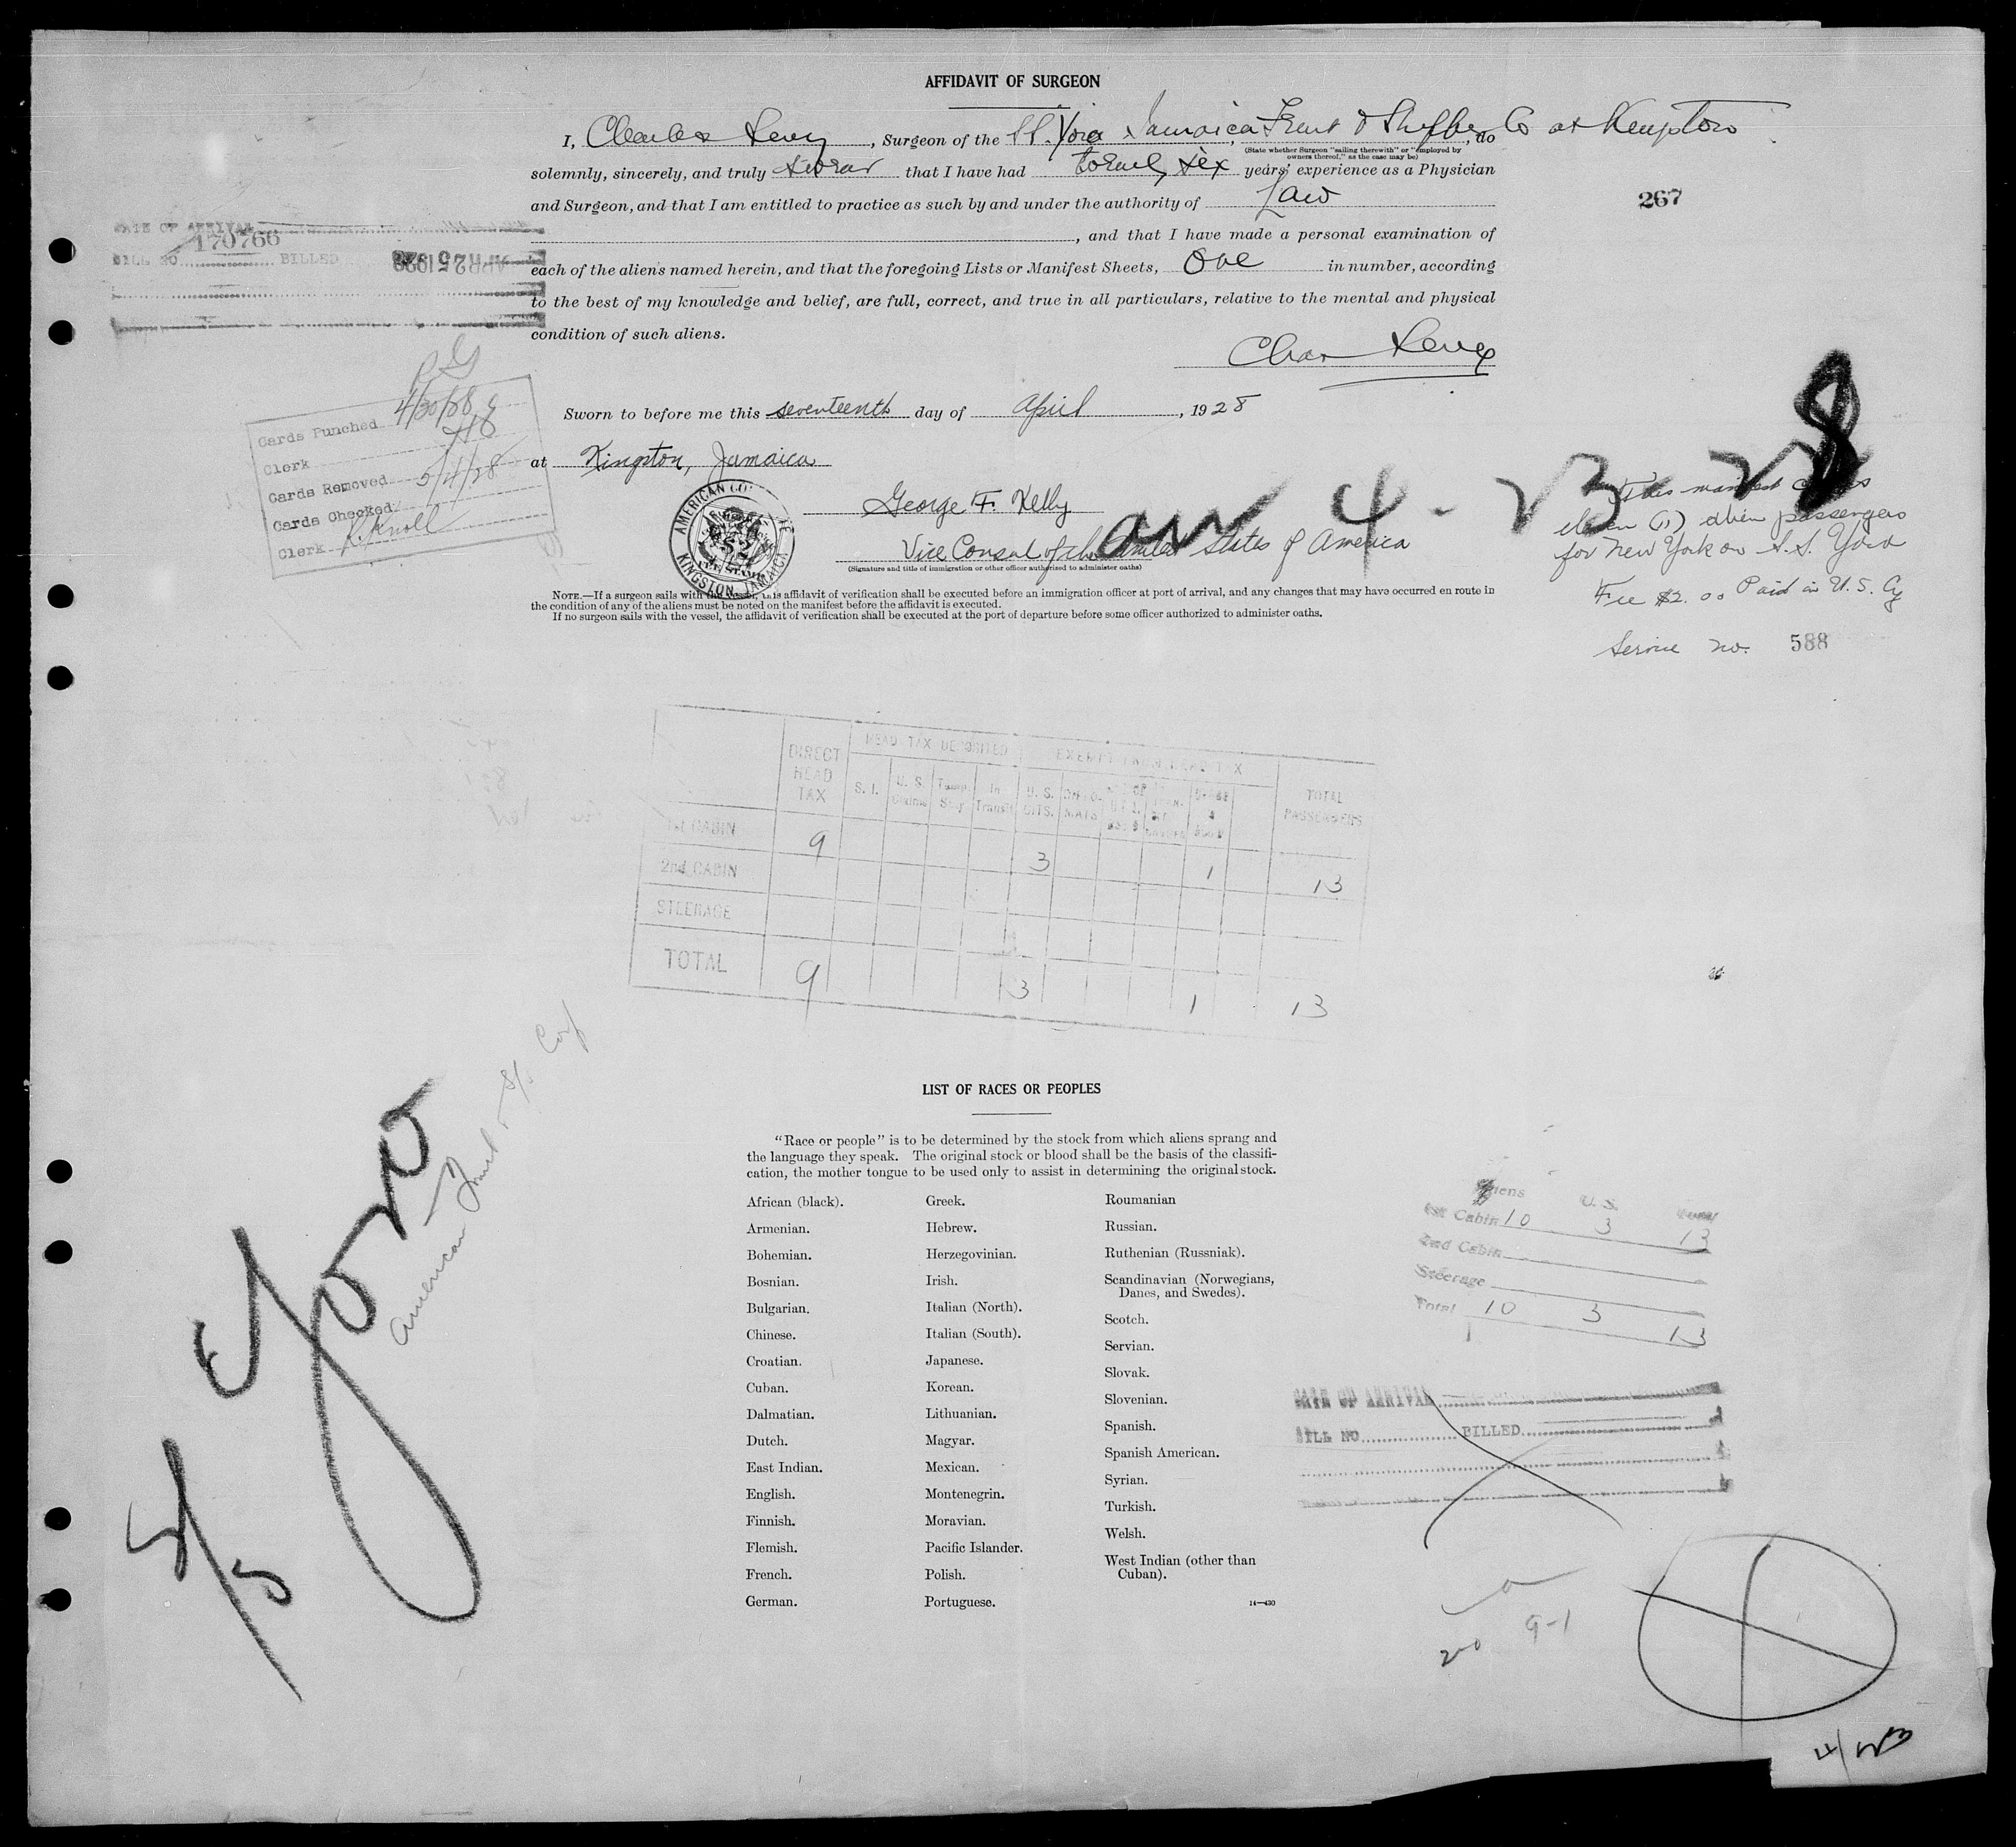 AFFIDAVIT OF SURGEON
I, Charles Levy, Surgeon of the SS. Yoro Jamaica Fruit & Shipping Co at Kingston, do
(State whether Surgeon "sailing therewith" or "employed by
owners thereof," as the case may be)
solemnly, sincerely, and truly swear that I have had twenty six years' experience as a Physician
and Surgeon, and that I am entitled to practice as such by and under the authority of Law
267
, and that I have made a personal examination of
DATE OF ARRIVAL
170766
BILL NO. BILLED APR 25 1928
each of the aliens named herein, and that the foregoing Lists or Manifest Sheets, One in number, according
to the best of my knowledge and belief, are full, correct, and true in all particulars, relative to the mental and physical
condition of such aliens.
Chas Levy
Cards Punched 4/30/28
Clerk
Cards Removed 5/4/28
Cards Checked
Clerk R. Knoll
Sworn to before me this seventeenth day of April, 1928
at Kingston, Jamaica
AMERICAN CO
KINGSTON, JAMAICA
FEE STAMP
George F. Kelly
4-23-28
Vice Consul of the United States of America
(Signature and title of immigration or other officer authorized to administer oaths)
This manifest covers
eleven (11) alien passengers
for New York on S.S. Yoro
Fee $2.00 Paid in U.S. Cy
Service no. 588
NOTE.—If a surgeon sails with the vessel, this affidavit of verification shall be executed before an immigration officer at port of arrival, and any changes that may have occurred en route in
the condition of any of the aliens must be noted on the manifest before the affidavit is executed.
If no surgeon sails with the vessel, the affidavit of verification shall be executed at the port of departure before some officer authorized to administer oaths.
DIRECT HEAD TAX
HEAD TAX DEPOSITED
EXEMPT FROM HEAD TAX
TOTAL PASSENGERS
S. I. U. S. Temp. Stay In Transit U. S. CITS.
1st CABIN 9 3 1 13
2nd CABIN
STEERAGE
TOTAL 9 3 1 13
Yoro
American Fruit & S/S Corp
S/S
LIST OF RACES OR PEOPLES
"Race or people" is to be determined by the stock from which aliens sprang and
the language they speak. The original stock or blood shall be the basis of the classifi-
cation, the mother tongue to be used only to assist in determining the original stock.
African (black).
Armenian.
Bohemian.
Bosnian.
Bulgarian.
Chinese.
Croatian.
Cuban.
Dalmatian.
Dutch.
East Indian.
English.
Finnish.
Flemish.
French.
German.
Greek.
Hebrew.
Herzegovinian.
Irish.
Italian (North).
Italian (South).
Japanese.
Korean.
Lithuanian.
Magyar.
Mexican.
Montenegrin.
Moravian.
Pacific Islander.
Polish.
Portuguese.
Roumanian
Russian.
Ruthenian (Russniak).
Scandinavian (Norwegians,
Danes, and Swedes).
Scotch.
Servian.
Slovak.
Slovenian.
Spanish.
Spanish American.
Syrian.
Turkish.
Welsh.
West Indian (other than
Cuban).
14—430
Aliens U. S. Total
1st Cabin 10 3 13
2nd Cabin
Steerage
Total 10 3 13
DATE OF ARRIVAL
BILL NO. BILLED
9-1
4/23